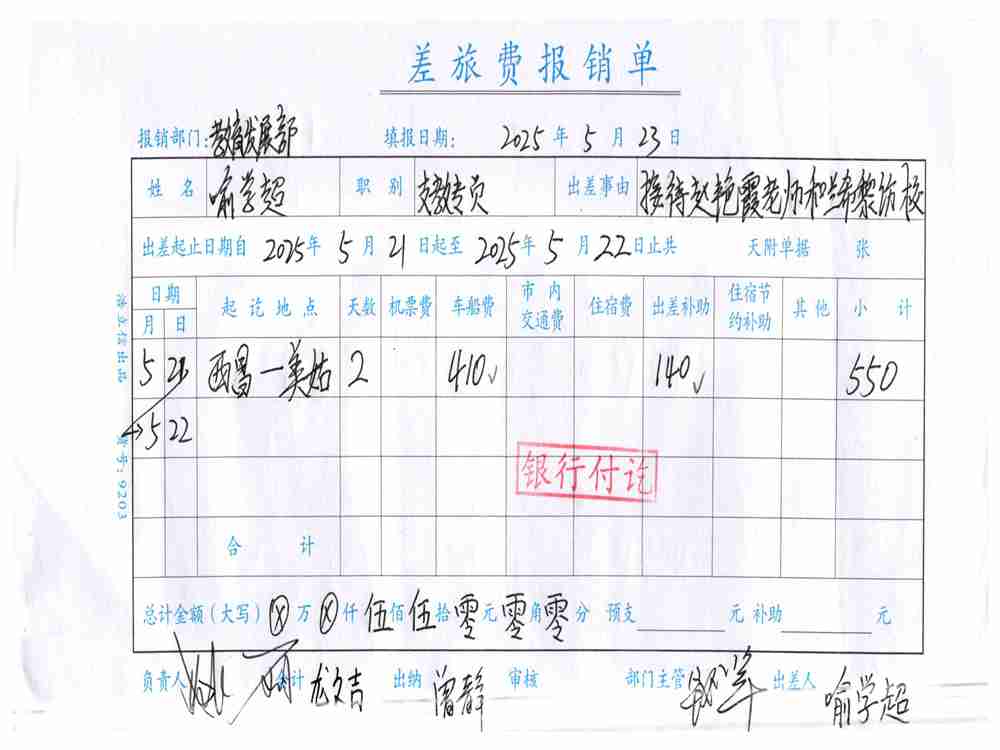 差旅费报销单
报销部门：教育发展部 填报日期： 2025 年 5 月 23 日
姓名 喻学超 职别 支教专员 出差事由 接待赵艳霞老师和 访校
出差起止日期自 2025 年 5 月 21 日起至 2025 年 5 月 22 日止共 天附单据 张
日期 起讫地点 天数 机票费 车船费 市内交通费 住宿费 出差补助 住宿节约补助 其他 小计
月 日
5 21 西昌一美姑 2 410 140 550
5 22
银行付讫
合计
总计金额（大写）ⓧ 万 ⓧ 仟 伍 佰 伍 拾 零 元 零 角 零 分 预支 元 补助 元
负责人 会计 龙文吉 出纳 曾静 审核 部门主管 出差人 喻学超
浩立信出品 货号：9203